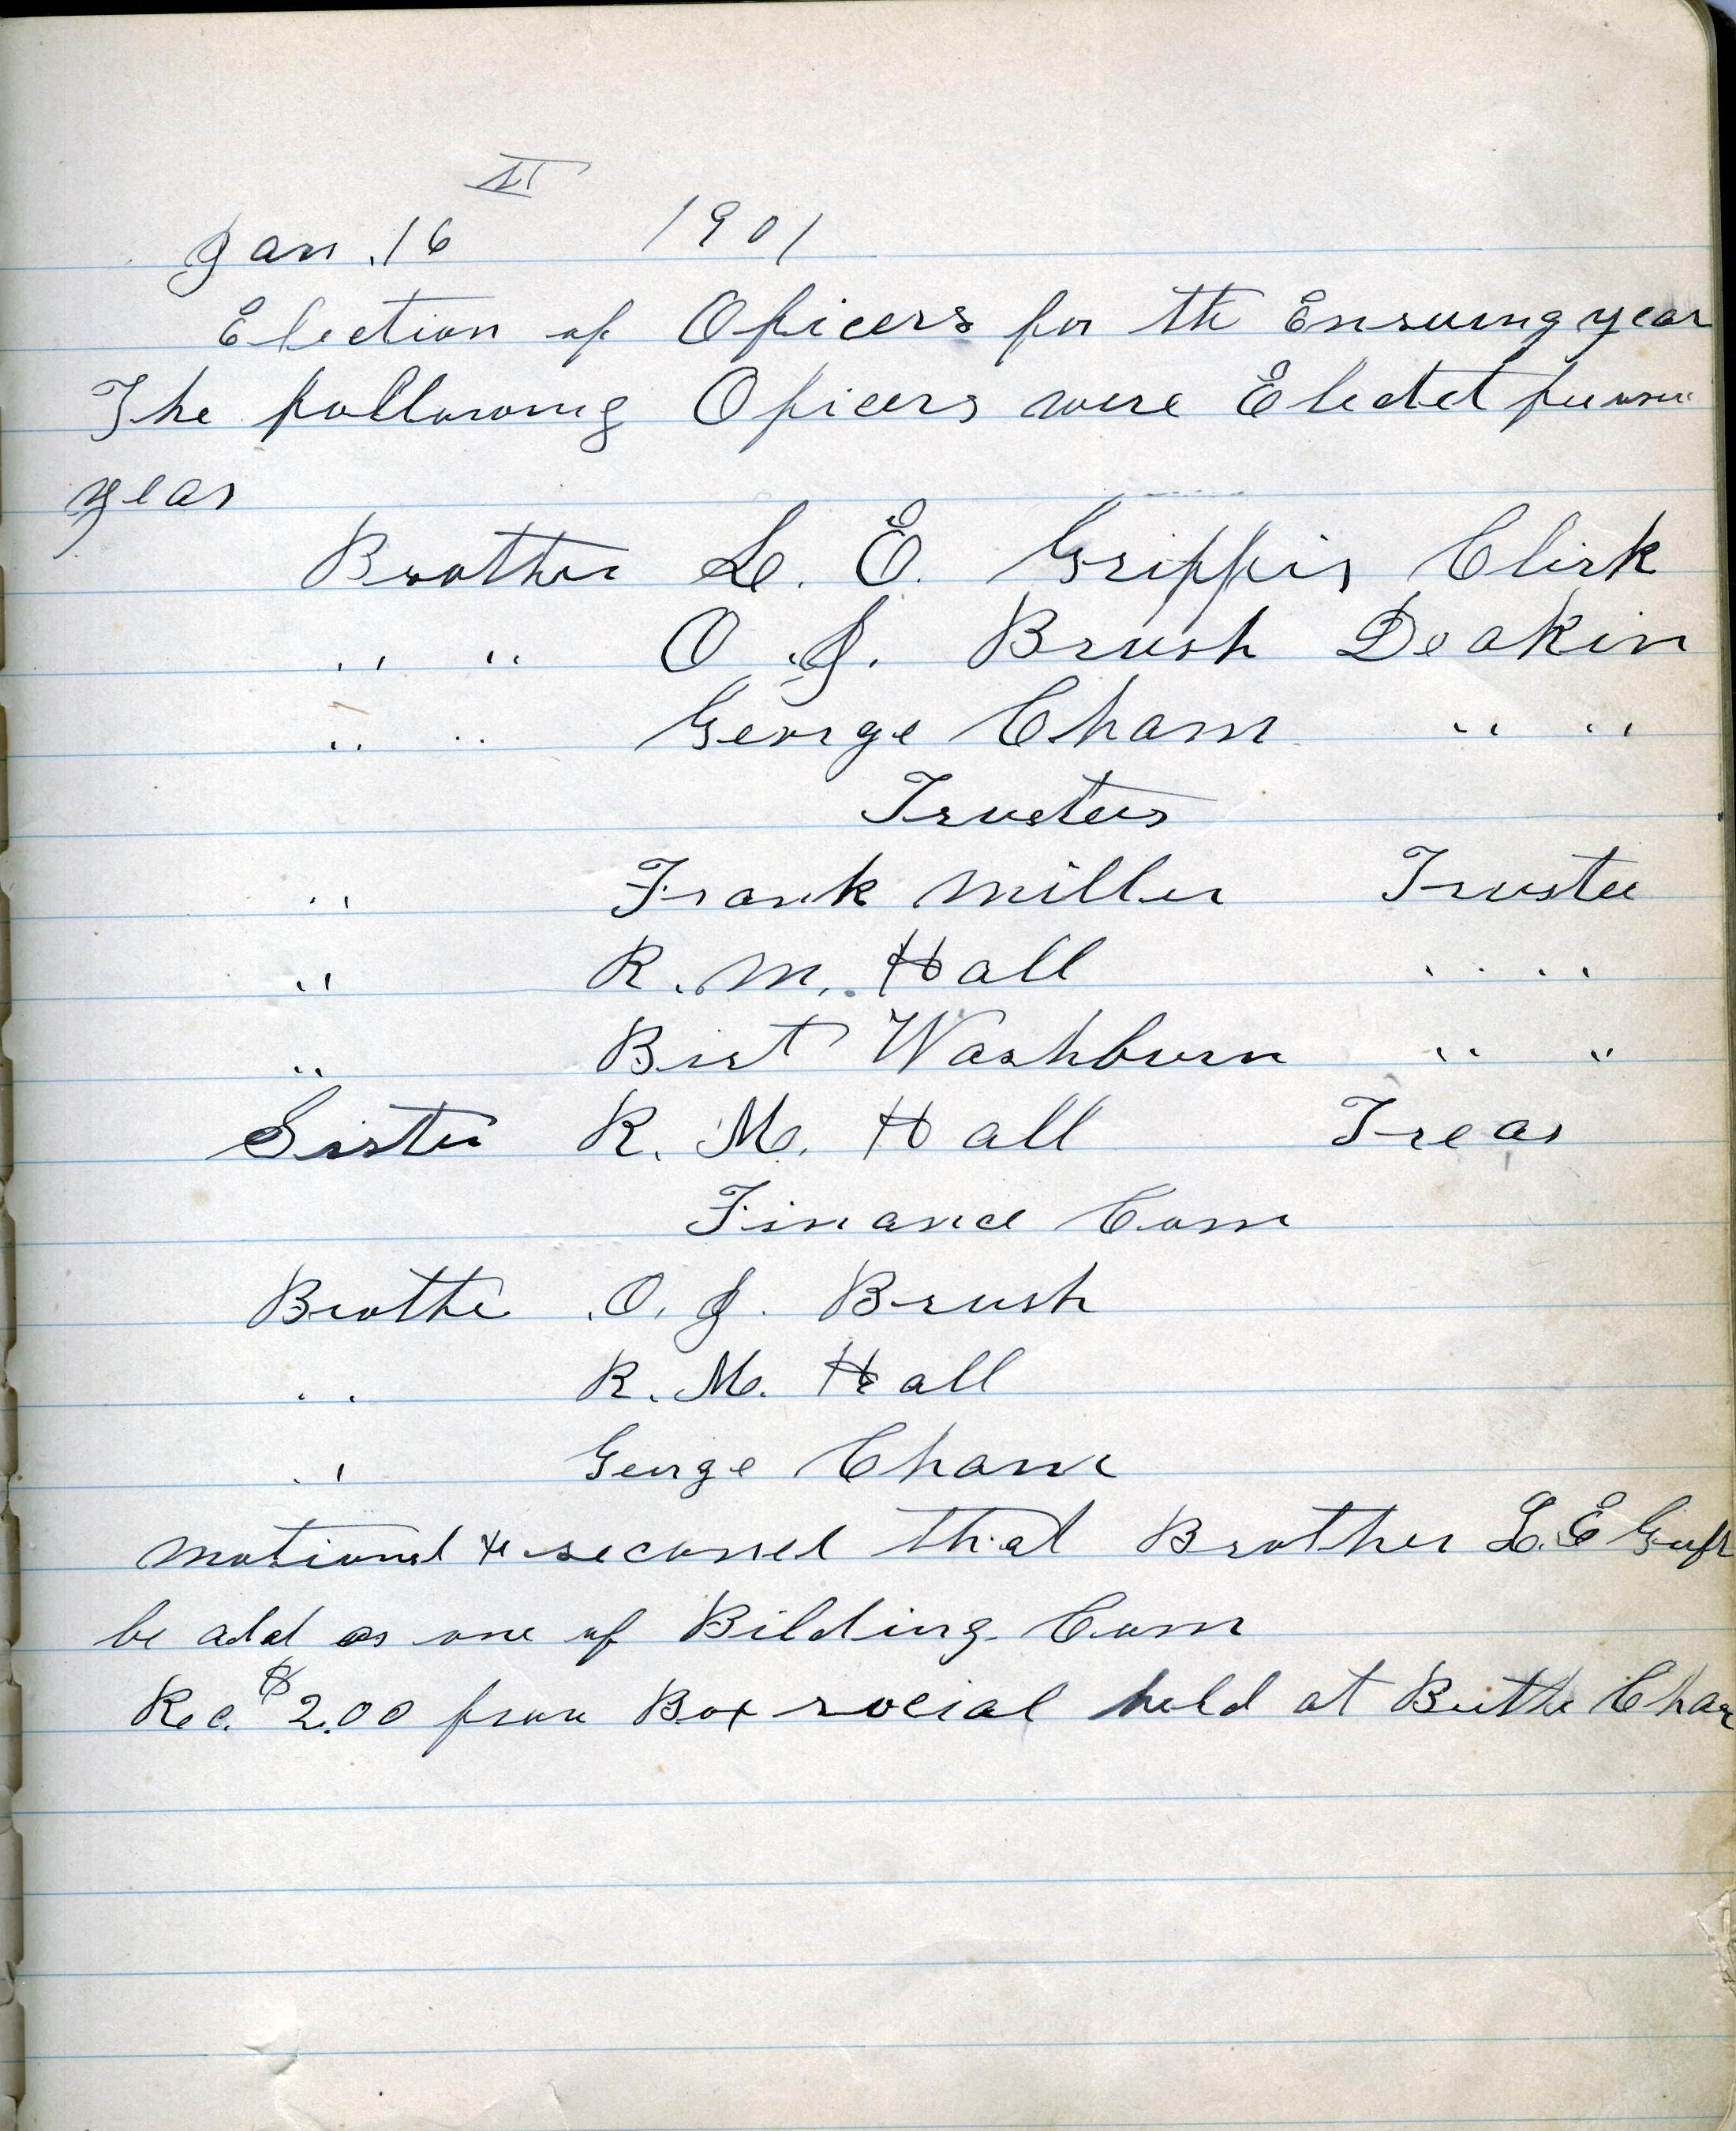 Jan. 16 st 1901
Election of Oficers for th Ensuing year
The following Oficers were Electet
year
Brother L. E. Griffis Clirk
" " O. J. Brush Deakin
" " George Cham " "
Trustees
" Frank Miller Trustee
" R. M. Hall " "
" Birt Washburn " "
Sister R. M. Hall Treas
Finance Com
Brothe O. J. Brush
" R. M. Hall
" George Cham
motional & seconed that Brother L. E
be add as one of Bilding Com
Rec. $2.00 from Box social held at Cham